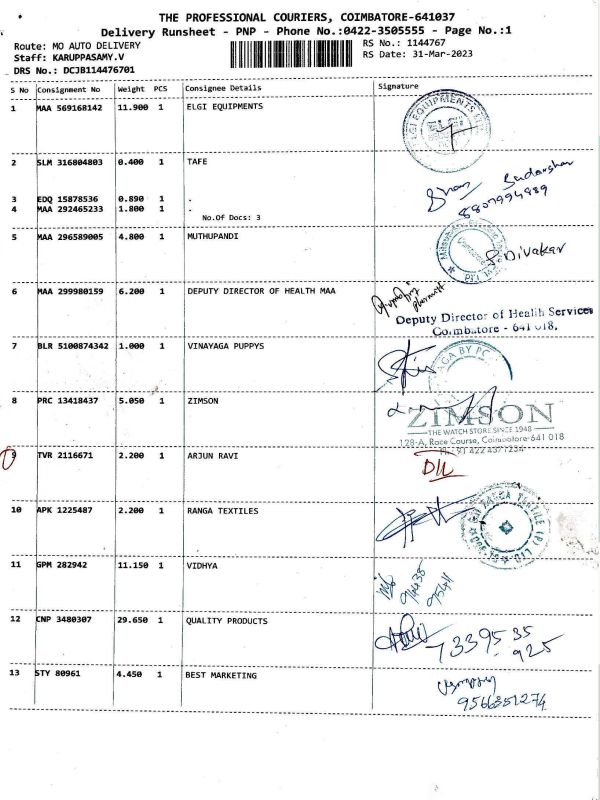 THE PROFESSIONAL COURIERS, COIMBATORE-641037
Delivery Runsheet - PNP - Phone No.:0422-3505555 - Page No.:1
Route: MO AUTO DELIVERY
RS No.: 1144767
Staff: KARUPPASAMY.V
RS Date: 31-Mar-2023
DRS No.: DCJB114476701
S No Consignment No Weight PCS Consignee Details Signature
1 MAA 569168142 11.900 1 ELGI EQUIPMENTS
2 SLM 316804803 0.400 1 TAFE
Sudarshan
8807994989
3 EDQ 15878536 0.890 1 .
4 MAA 292465233 1.800 1 .
No.Of Docs: 3
5 MAA 296589005 4.800 1 MUTHUPANDI
S.Divakar
6 MAA 299980159 6.200 1 DEPUTY DIRECTOR OF HEALTH MAA
Deputy Director of Health Services
Coimbatore - 641 018.
7 BLR 5100874342 1.000 1 VINAYAGA PUPPYS
8 PRC 13418437 5.050 1 ZIMSON
ZIMSON
THE WATCH STORE SINCE 1948
128-A, Race Course, Coimbatore-641 018
9 TVR 2116671 2.200 1 ARJUN RAVI
10 APK 1225487 2.200 1 RANGA TEXTILES
11 GPM 282942 11.150 1 VIDHYA
12 CNP 3480307 29.650 1 QUALITY PRODUCTS
73395 35
925
13 STY 80961 4.450 1 BEST MARKETING
9566351274